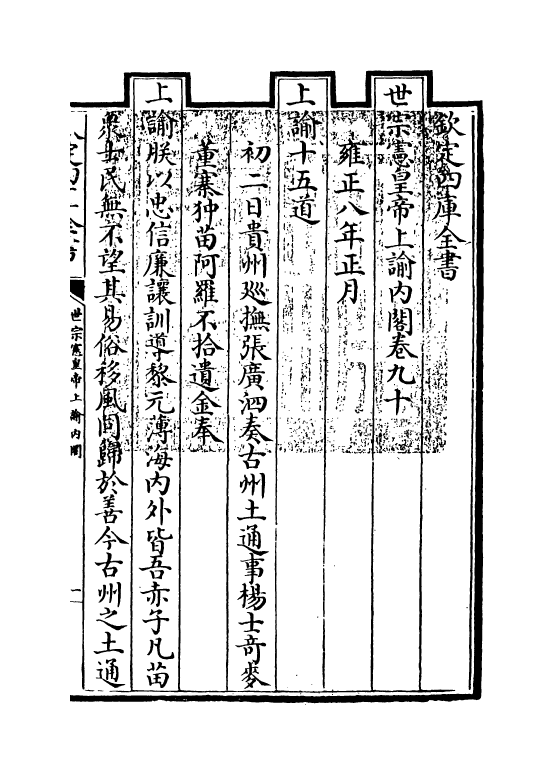 欽定四庫全書
世宗憲皇帝上諭內閣卷九十
雍正八年正月
上諭十五道
初二日貴州廵撫張廣泗奏古州土通事楊士竒麥
董寨狆苗阿羅不拾遺金奉
上諭朕以忠信廉讓訓導黎元薄海內外皆吾赤子凡苗
衆士民無不望其易俗移風同歸於善今古州之土通
世宗憲皇帝上諭內閣
一